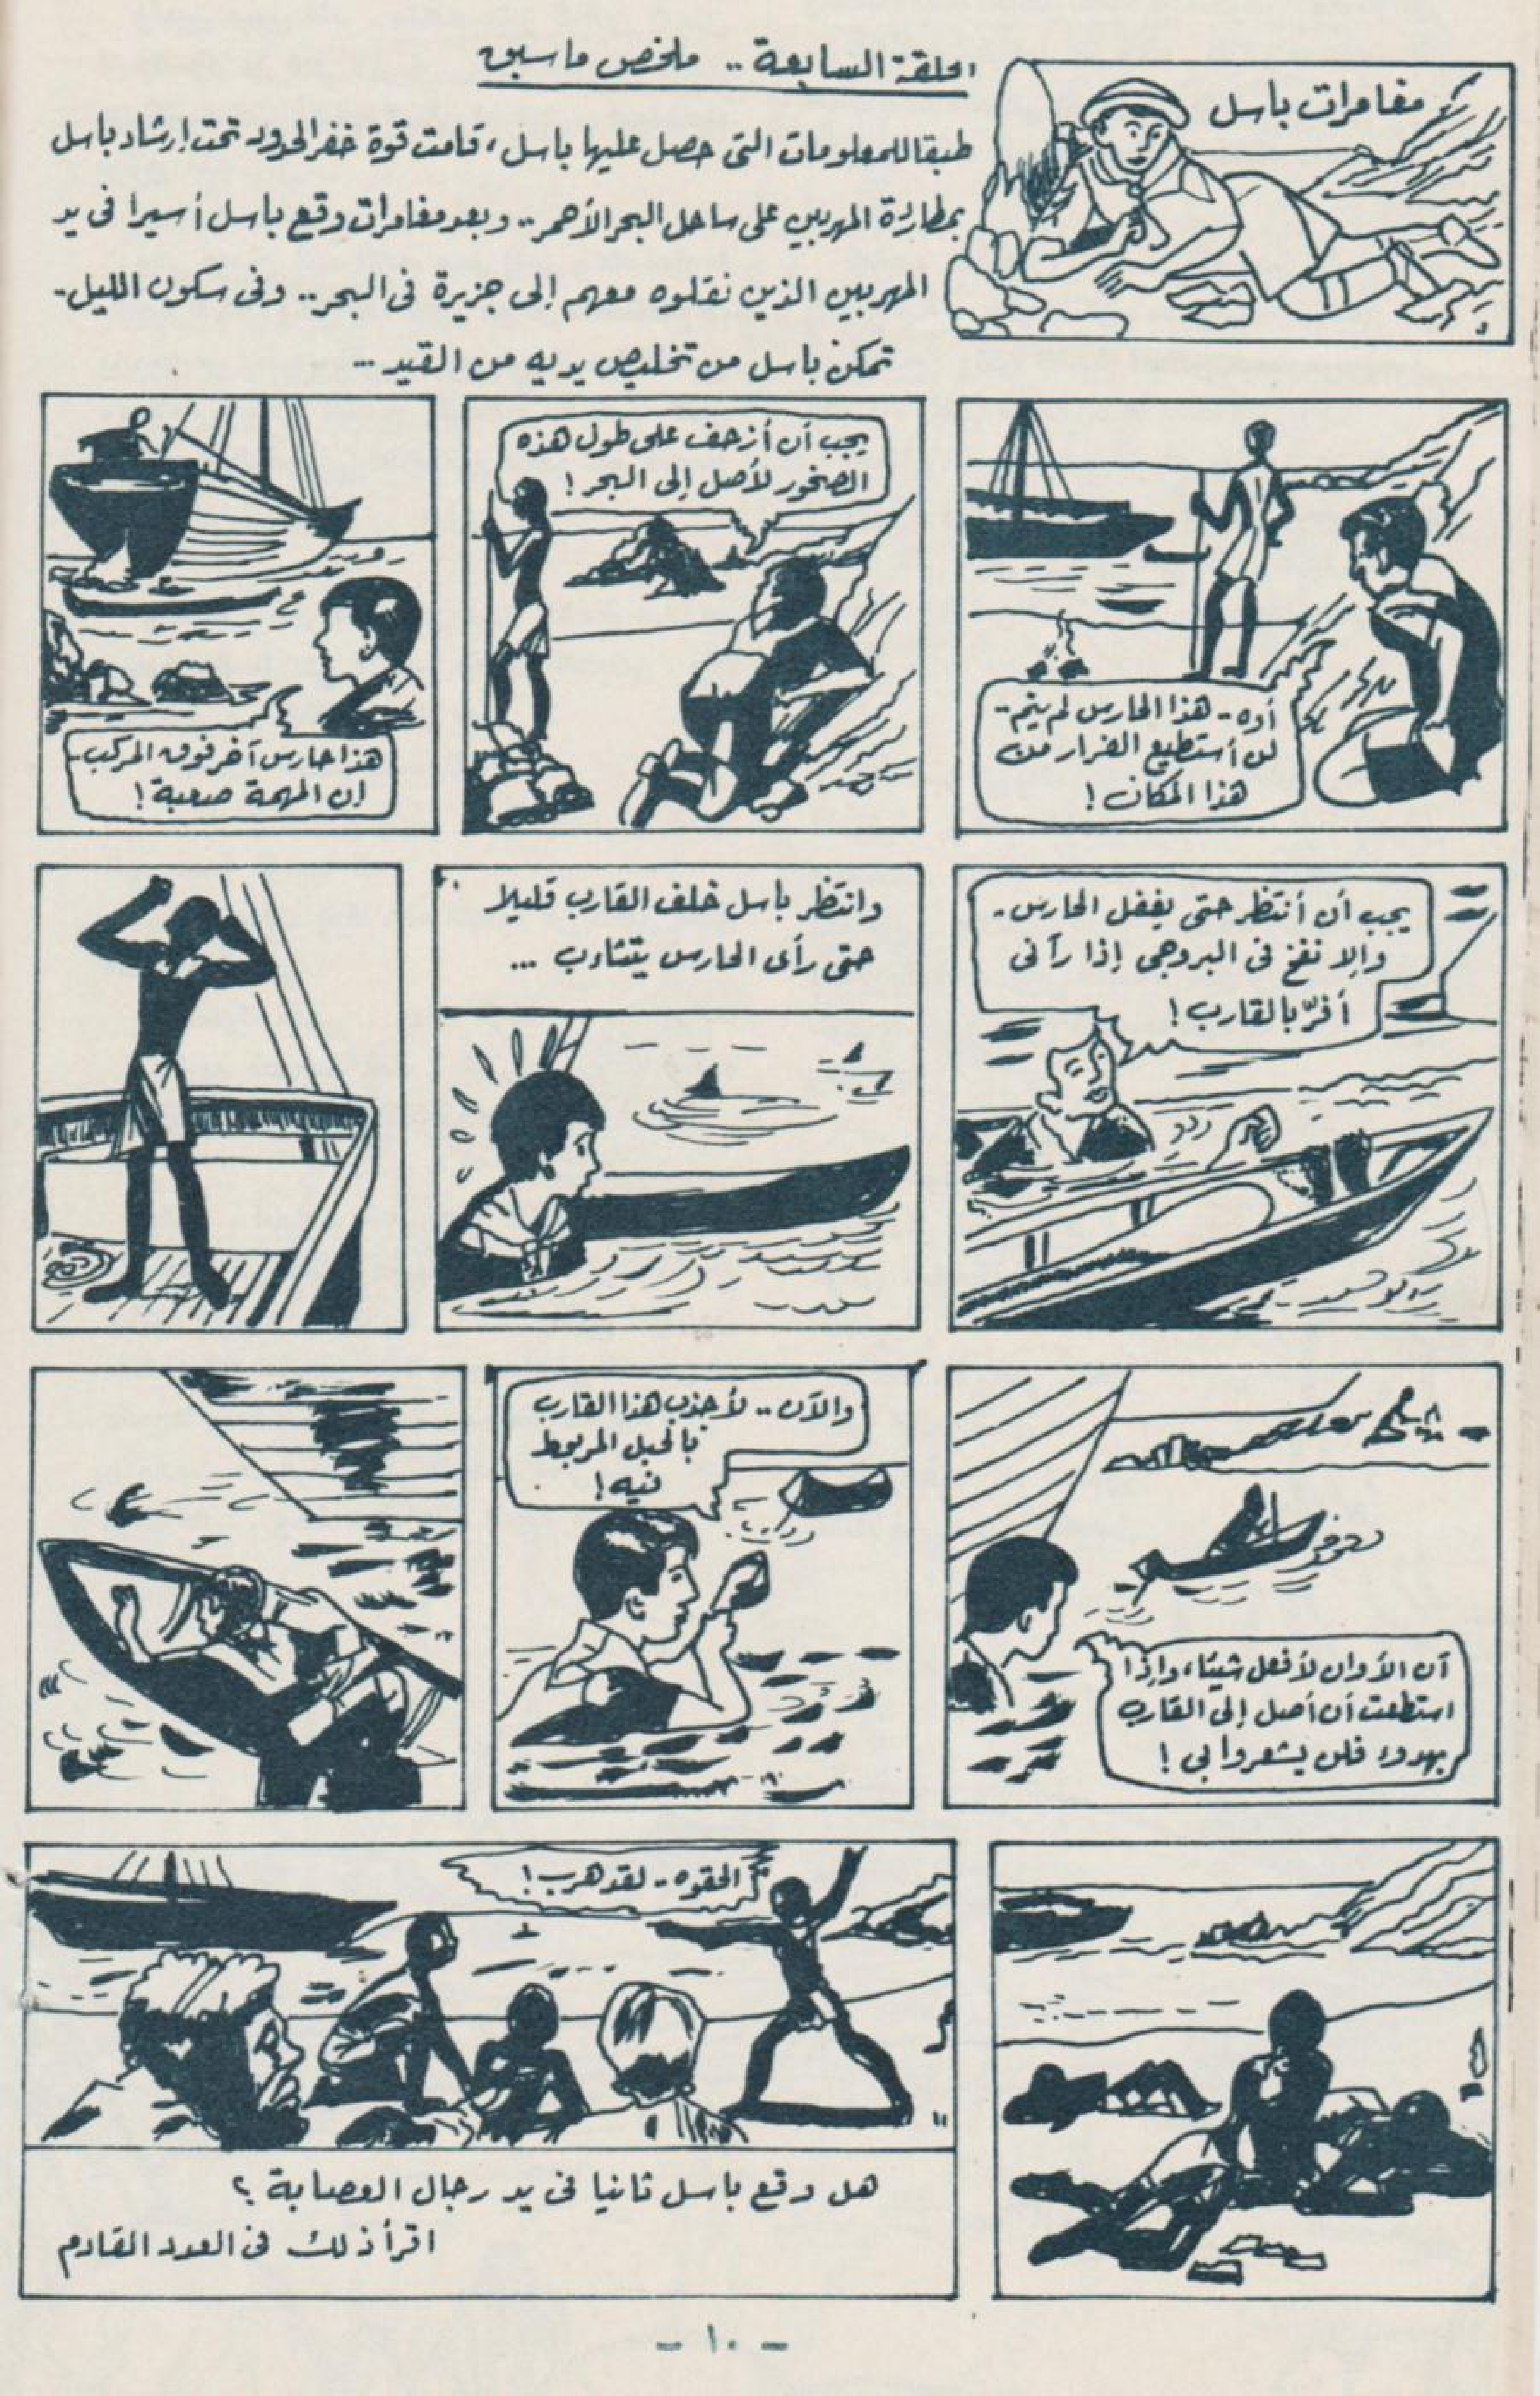 مغامرات باسل
الحلقة السابعة .. ملخص ما سبق
طبقا للمعلومات التى حصل عليها باسل ، قامت قوة خفر الحدود تحت إرشاد باسل
بمطاردة المهربين على ساحل البحر الأحمر .. وبعد مغامرات وقع باسل أسيرا فى يد
المهربين الذين نقلوه معهم إلى جزيرة فى البحر .. وفى سكون الليل -
تمكن باسل من تخليص يديه من القيد ...
أوه - هذا الحارس لم ينم --
لن أستطيع الفرار من
هذا المكان !
يجب أن أزحف على طول هذه
الصخور لأصل إلى البحر !
هذا حارس آخر فوق المركب -
إن المهمة صعبة !
يجب أن أنتظر حتى يغفل الحارس -
وإلا نفخ فى البروجى إذا رآنى
أفرّ بالقارب !
وانتظر باسل خلف القارب قليلا
حتى رأى الحارس يتثاءب ...
آن الأوان لأفعل شيئا ، وإذا
استطعت أن أصل إلى القارب
بهدوء فلن يشعروا بى !
والآن .. لأجذب هذا القارب
بالحبل المربوط
فيه !
الحقوه -- لقد هرب !
هل وقع باسل ثانيا فى يد رجال العصابة ؟
اقرأ ذلك فى العدد القادم
- ١٠ -